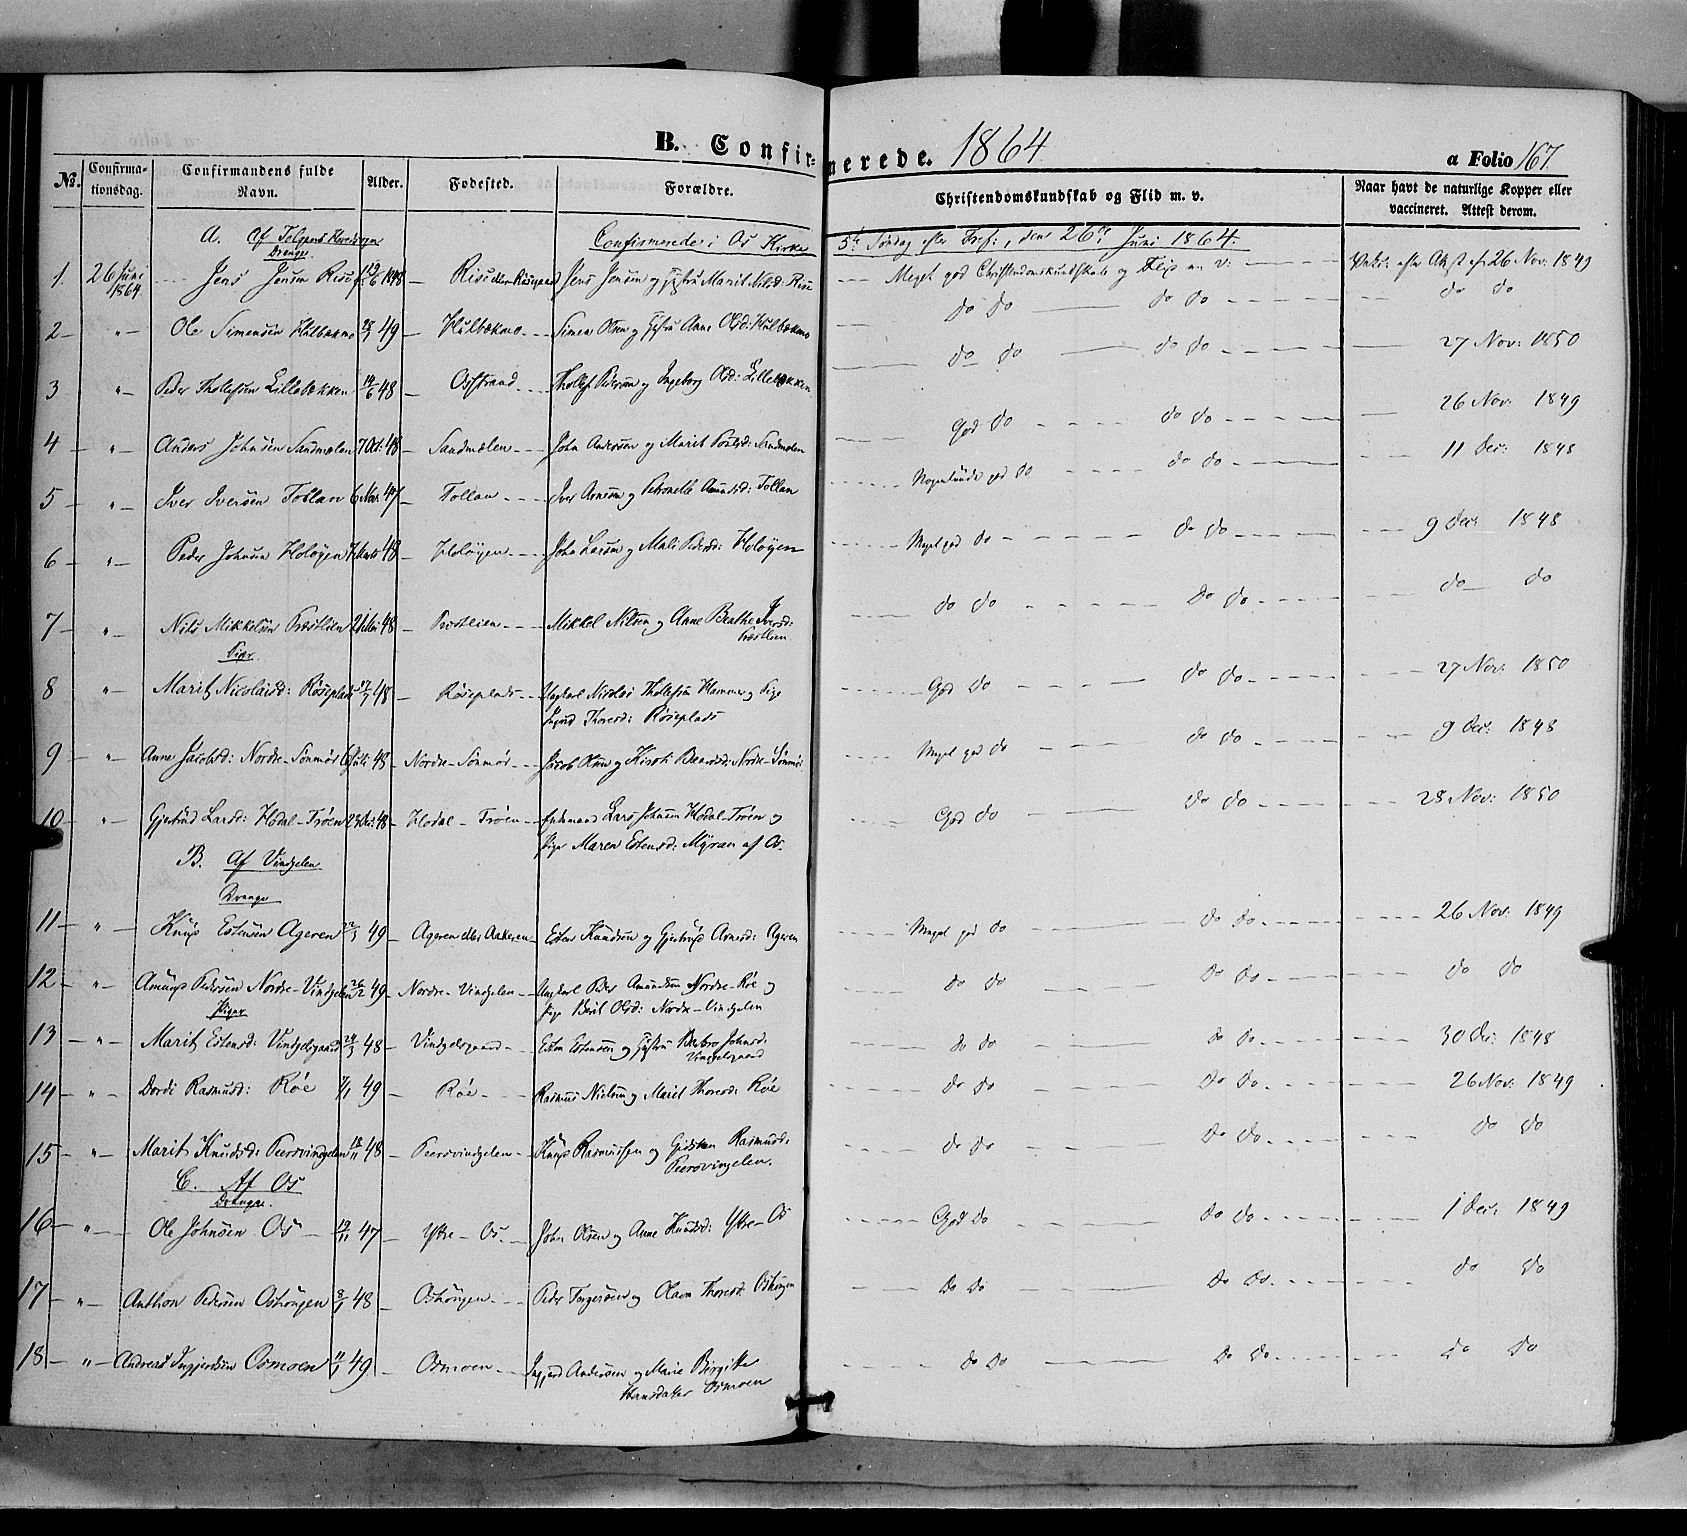 B. Confirmerede. 1864
a Folio 167.
No. Confirmationsdag. Confirmandens fulde Navn. Alder. Fødested. Forældre. Christendomskundskab og Flid m. v. Naar havt de naturlige Kopper eller vaccineret. Attest derom.
A. Af Tolgens Hovedsogn Confirmerede i Os Kirke 5te Søndag efter Tref:, den 26de Juni 1864.
Drenge.
1. 26 Juni 1864. Jens Jensen Rise 1848 Rise eller Riisegaard Jens Jensen og Hustru Marit Nilsd: Rise Meget god Christendomskundskab og Flid m. v: Vakc: efter Attest af 26 Nov: 1849
2 " Ole Simensen Hulbækmo 49 Hulbækmo Simen Olsen og Hustru Anne Olsd: Hulbækmo do do do do do do
3 " Peder Thollefsen Lillebækken 19/6 48 Osstrand Thollef Pedersen og Ingeborg Olsd: Lillebækken do do do do 27 Nov: 1850
4 " Anders Johnsen Sandmælen 7 Oct: 48 Sandmælen John Andersen og Marit Poulsd: Sandmælen God do do do 26 Nov: 1849
5 " Iver Iversen Tollan 6 Nov: 47 Tollan Iver Arnesen og Petronelle Amundsd: Tollan Nogenlunde god do do do 11 Dec: 1848
6 " Peder Johnsen Holøyen 48 Holøyen John Larsen og Mali Pedersd: Holøyen Meget god do do do 9 Dec: 1848
7 " Nils Mikkelsen Præstlien 48 Præstlien Mikkel Nilsen og Anne Beathe Iversd: Præstlien do do do do do do
Piger.
8 " Marit Nicolaisd: Røseplads 48 Røseplads Ungkarl Nicolai Thollefsen Hammer og Pige God do do do 27 Nov: 1850
Ingrid Thoresd: Røseplads
9 " Anne Jacobsd: Nordre-Sønmør 6 Juli 48 Nordre-Sønmør Jacob Olsen og Kirsti Baardsd: Nordre-Sønmør Meget god do do do 9 Dec: 1848
10 " Gjertrud Larsd: Hodal-Trøen 48 Hodal-Trøen Enkemand Lars Johnsen Hodal-Trøen og God do do do 28 Nov: 1850
Pige Maren Estensd: Myran af Os
B. Af Vindgelen
Drenge
11 " Knud Estensen Ageren 49 Ageren eller Aakeren Esten Knudsen og Gjertrud Arnesd: Ageren Meget god do do do 26 Nov: 1849
12 " Amund Pedersen Nordre-Vindgelen 26/2 49 Nordre-Vindgelen Ungkarl Peder Amundsen Nordre-Røe og do do do do do do
Pige Berit Olsd: Nordre-Vindgelen
Piger
13 " Marit Estensd: Vindgelsgaard 48 Vindgelsgaard Esten Estensen og Hustru Barbro Johnsd: Vindgelsgaard do do do do 30 Dec: 1848
14 " Dordi Rasmusd: Røe 7/1 49 Røe Rasmus Nielsen og Marit Thoresd: Røe do do do do 26 Nov: 1849
15 " Marit Knudsd: Peersvindgelen 18/11 48 Peersvindgelen Knud Rasmussen og Gjertru Rasmusd: Peersvingelen. do do do do do do
C. Af Os
Drenge.
16 " Ole Johnsen Os 19/11 47 Ytre-Os John Olsen og Anne Knudsd: Ytre-Os God do do do 1 Dec: 1849
17 " Anthon Pedersen Oshougen 8/1 48 Oshougen Peder Torgersen og Olava Thoresd: Oshougen do do do do do do
18 " Andreas Ingjerdsen Osmoen 11/1 49 Osmoen Ingjerd Andersen og Marie Birgitte do do do do do do
Hansdatter Osmoen